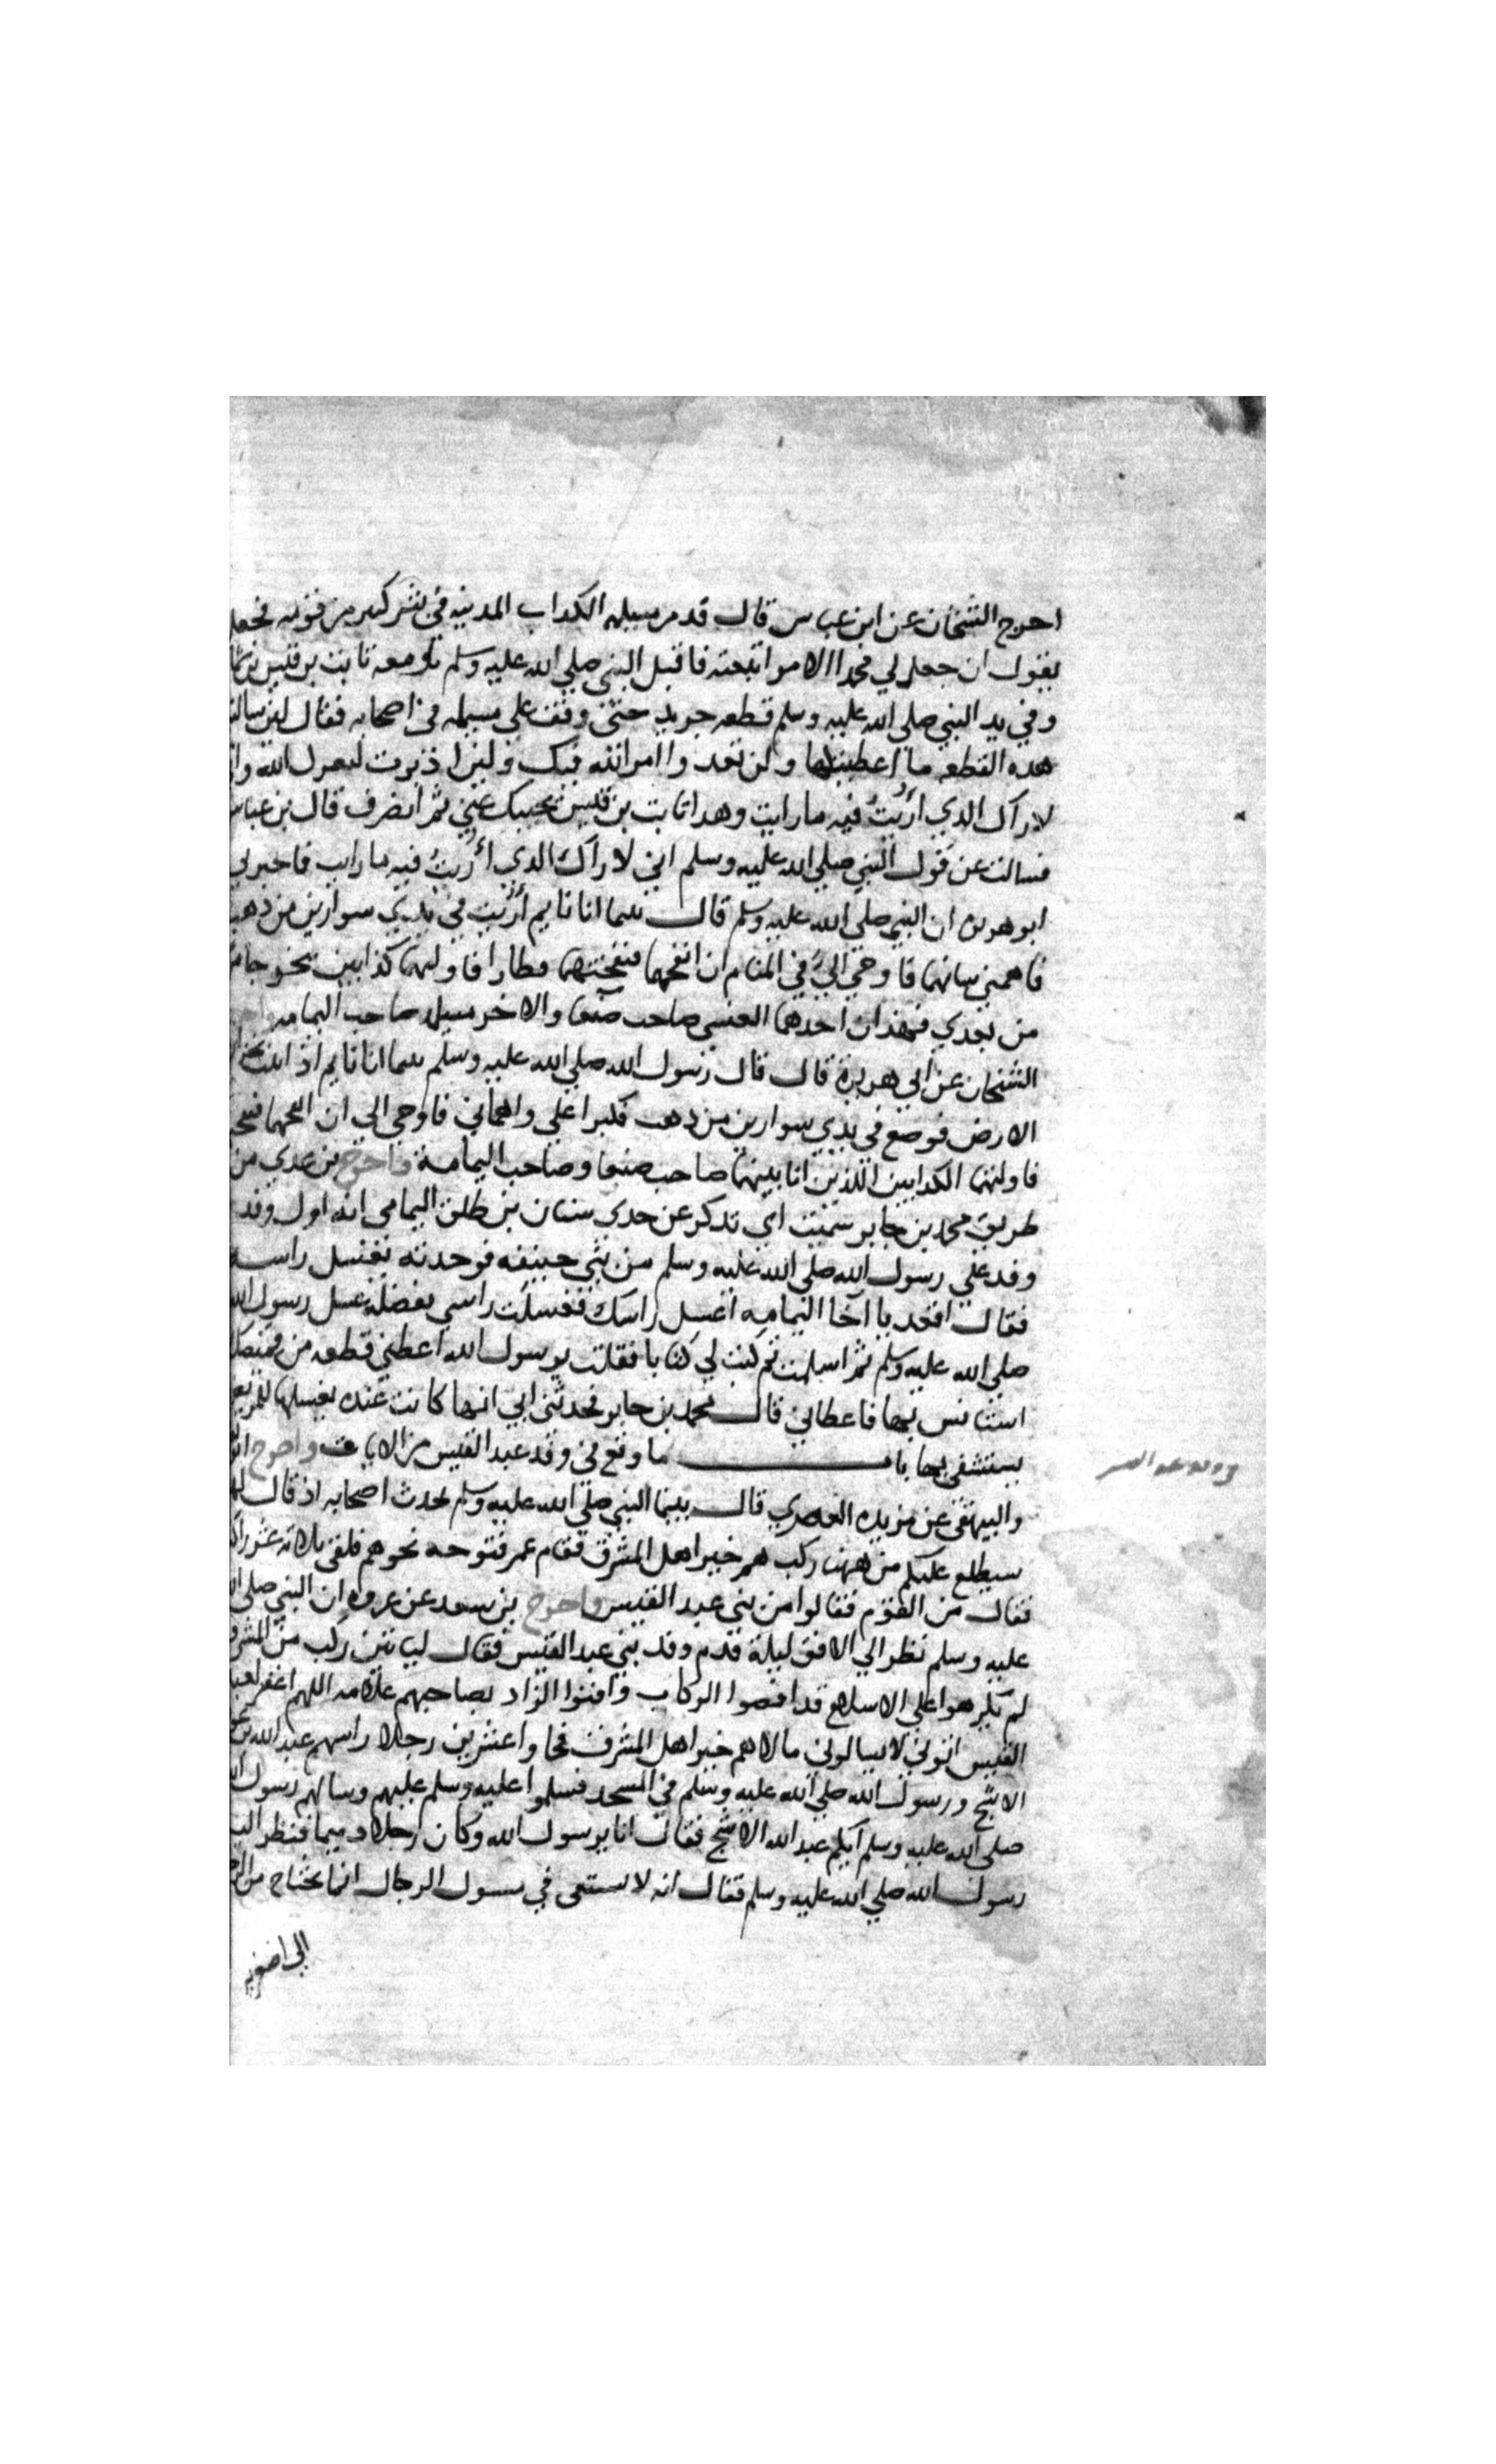 اخرج الشيخان عن ابن عباس قال قدم مسيلمه الكداب المدينه في بشر كبير من قومه فجعل
يقول ان جعل لي محمدا الامر اتبعته فاقبل النبي صلي الله عليه وسلم ومعه ثابت بن قيس بن
وفي يد النبي صلي الله عليه وسلم قطعه جريد حتى وقف على مسيلمه في اصحابه فقال لين سالت
هده القطعه ما اعطيتكها ولن تعدوا امر الله فيك ولين ادبرت ليعقرنك الله
لاراك الدي اريت فيه ما رايت وهدا ثابت بن قيس يجيبك عني ثم انصرف قال بن عباس
فسالت عن قول النبي صلي الله عليه وسلم اني لا راك الدي اريت فيه ما رايت فاخبرني
ابو هريرة ان النبي صلي الله عليه وسلم قال بينما انا نايم أريت في يدي سوارين من دهب
فاهمني شانهما فاوحي الي في المنام ان انفخهما فنفختهما فطارا فاولتهما كذابين يخرجان
من بعدي فهذان احدهما العنسي صاحب صنعا والاخر مسيلمه صاحب اليمامه
الشيخان عن ابي هريرة قال قال رسول الله صلي الله عليه وسلم بينما انا نايم اذ
الارض فوضع في يدي سوارين من دهب فكبرا علي واهماني فاوحي الي ان انفخهما
فاولتهما الكدابين اللذين انا بينهما صاحب صنعا وصاحب اليمامة واخرج بن عدي من
طريق محمد بن جابر سمعت ابي تدكر عن جدي سنان بن طلق اليمامي انه اول وفد
وفد علي رسول الله صلي الله عليه وسلم من بني حنيفه فوجدته يغسل راسه
فقال اقعد يا آخا اليمامه اغسل راسك فغسلت راسي بفضله غسل رسول الله
صلي الله عليه وسلم ثم اسلمت ثم كتب لي كتابا فقلت يرسول الله اعطني قطعه من قميصك
استانس بها فاعطاني قال محمد بن جابر فحدثني ابي انها كانت عنده يغسلها
يستشفي بها باب ما وقع في وفد عبد القيس من الايات واخرج
والبيهقي عن مزيده العصري قال بينما النبي صلي الله عليه وسلم يحدث اصحابه اذ قال لهم
سيطلع عليكم من ههنا ركب هم خير اهل المشرق فقام عمر فتوجه نحوهم فلقي ثلاثه عشر
فقال من القوم فقالوا من بني عبد القيس واخرج بن سعد عن عروه ان النبي صلي
عليه وسلم نظر الي الافق ليلة قدم وفد بني عبد القيس فقال لياتين ركب من المشرق
لم يكرهوا علي الاسلام قد انضوا الركاب وافنوا الزاد بصاحبهم علامه اللهم اغفر
القيس اتوني لا يسالوني مالا هم خير اهل المشرق فجاوا عشرين رجلا راسهم عبد الله بن
الاشج ورسول الله صلي الله عليه وسلم في المسجد فسلموا عليه وسلم عليهم وسالهم رسول
صلي الله عليه وسلم ايكم عبد الله الاشج فقال انا يرسول الله وكان رجلا دميما فنظر اليه
رسول الله صلي الله عليه وسلم فقال انه لا يستقي في مسوك الرجال انما يحتاج من
الي اصغريه